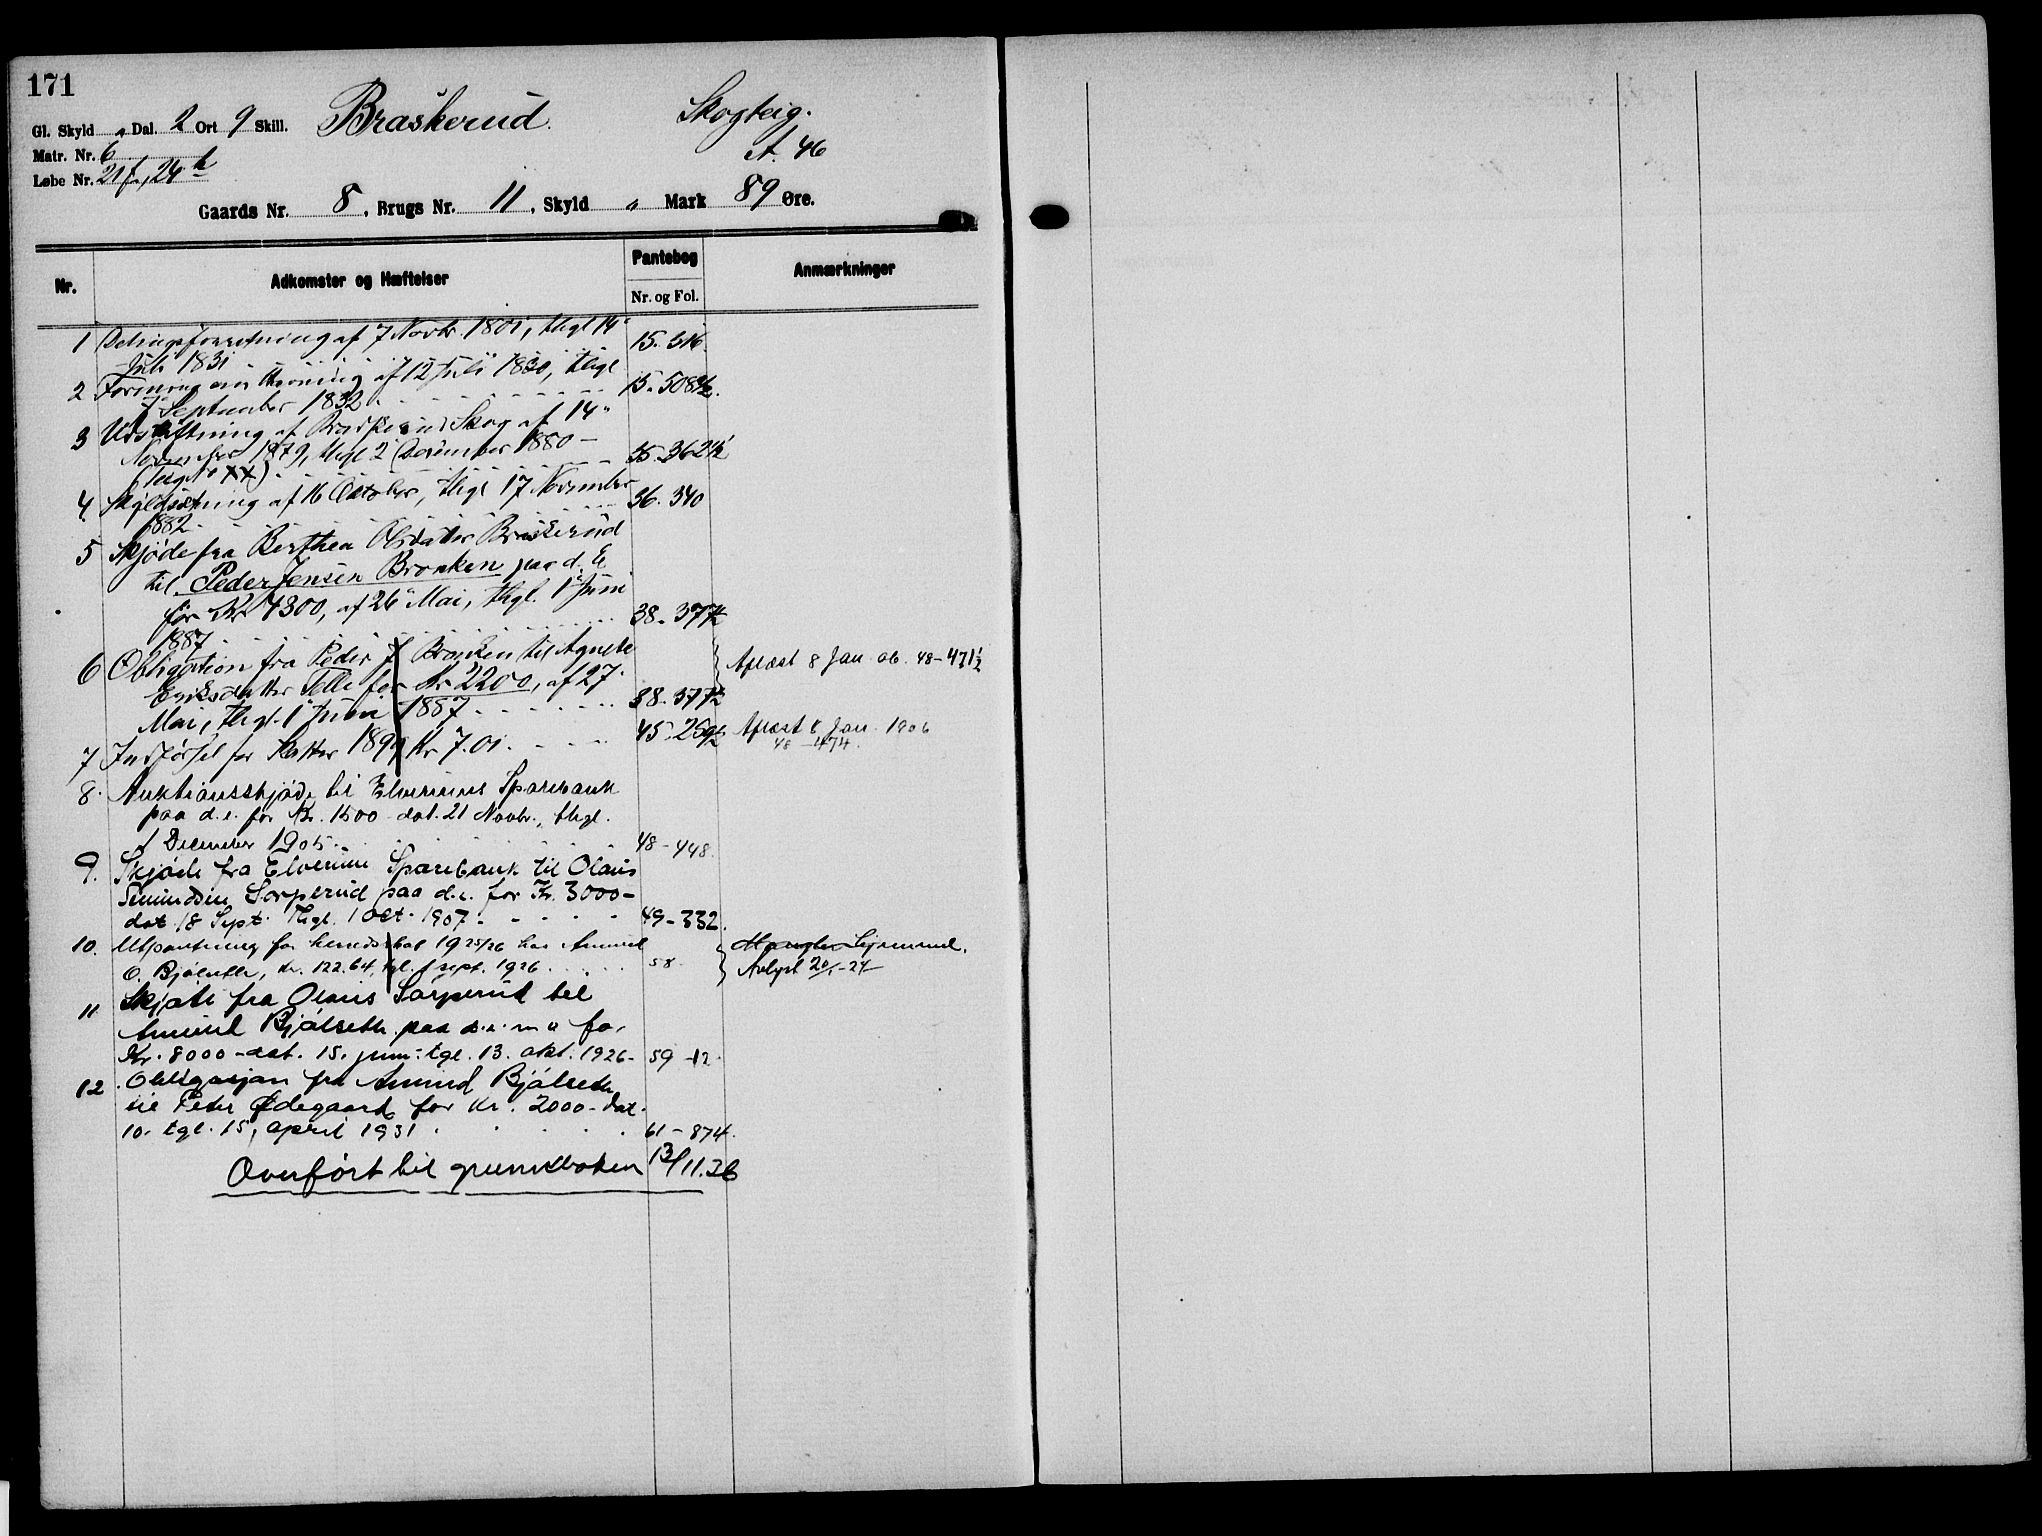 171
Gl. Skyld " Dal. 2 Ort 9 Skill. Braskerud. Skogteig.
Matr. Nr. 6 A. 46
Løbe Nr. 21f, 24b
Gaards Nr. 8, Brugs Nr. 11, Skyld " Mark 89 Øre.
Nr. Adkomster og Hæftelser Pantebog Anmærkninger
Nr. og Fol.
1 Delingsforretning af 7 Novbr. 1801, thgl 14
Juli 1831 15. 316.
2 af 12 Juli 1830, thgl
7 September 1832 15. 508½.
3 Udskiftning af Braskerud Skog af 14"
November 1879, thgl 2 December 1880 –
(Teig XX) 35. 362½
4. Skyldsætning af 16 Oktober, thgl 17 November
1882 36. 340
5 Skjøde fra Berthea Olsdatter Braskerud
til Peder Jensen Bronken paa d. E
for Kr 4300, af 26 Mai, thgl. 1 Juni
1887 38. 377½
6 Obligation fra Peder J Bronken til Agnete
Eriksdatter for Kr 2200, af 27. Aflæst 8 Jan 06. 48-471½
Mai, thgl. 1 Juni 1887 38. 377½
7 Indførsel for Skatter 1899 Kr 7.01. 45. 259½ Aflæst 8 Jan. 1906
48 - 474.
8. Auktionsskjøde til Elverums Sparebank
paa d.e. for Kr. 1500 dat. 21 Novbr., thgl.
1 December 1905. 48 - 448.
9. Skjøde fra Elverums Sparebank til Olaus
Simundsen Sorperud paa d.e. for Kr. 3000 –
dat. 18 Sept. Thgl. 1 Oct. 1907. 49 - 332.
10. Utpantning for herredsskat 1925/26 hos Amund
O. Bjølseth, kr. 122.64, tgl. 1 sept. 1926 58. Avlyst
11 Skjøte fra Olaus Sorperud til
Amund Bjølseth paa d.e. m fl for
Kr. 8000 – dat. 15. juni tgl. 13. okt. 1926 – 59 - 12.
12 Obligasjon fra Amund Bjølseth
til Peter Ødegaard for kr. 2000 – dat.
10. tgl. 15, april 1931 61 - 874.
Overført til grunnboken 13/11.36